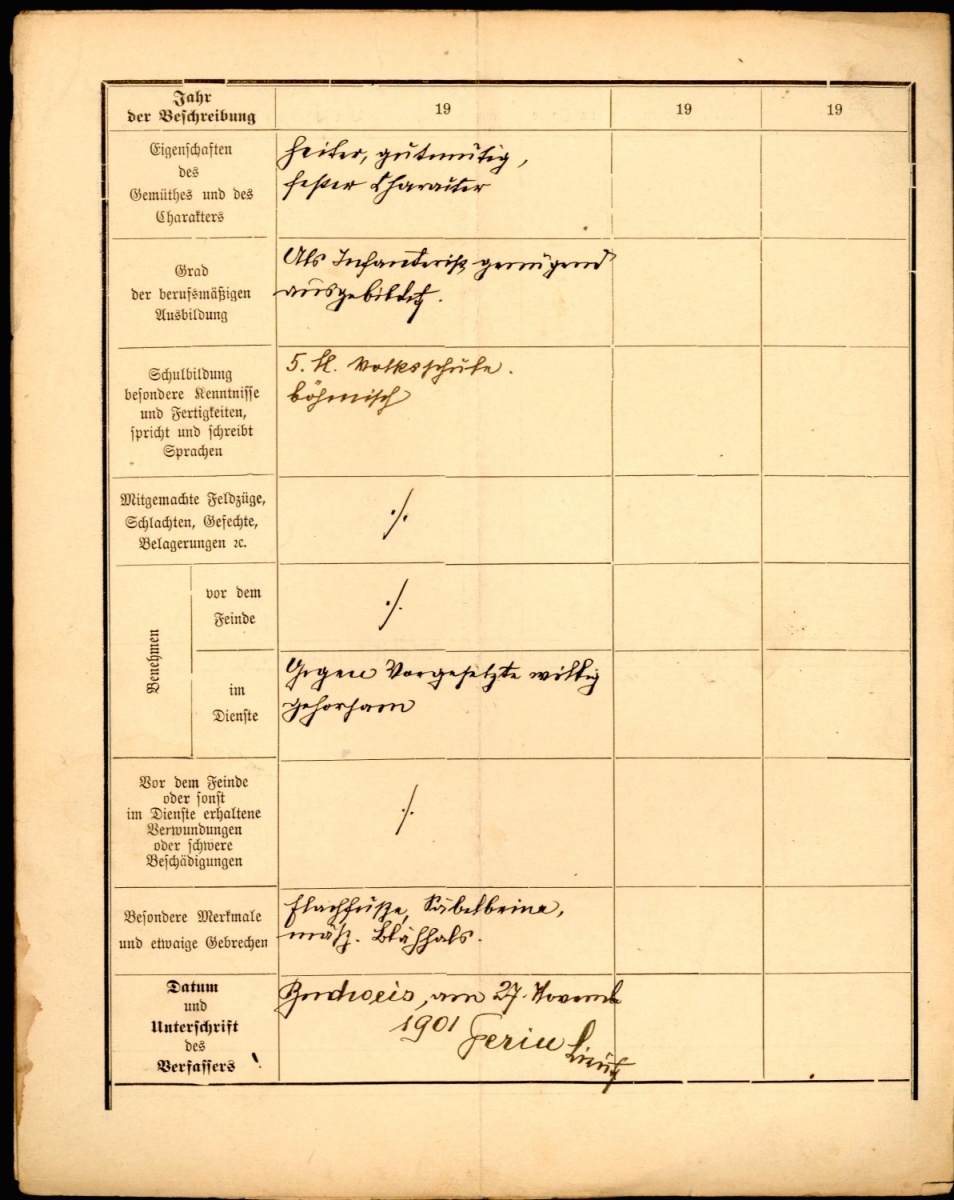 Jahr
der Beschreibung
19
19
19
Eigenschaften
des
Gemüthes und des
Charakters
heiter, gutmütig,
fester Charakter
Grad
der berufsmäßigen
Ausbildung
Als Infanterist genügend
ausgebildet.
Schulbildung
besondere Kenntnisse
und Fertigkeiten,
spricht und schreibt
Sprachen
5. Kl. Volksschule.
böhmisch
Mitgemachte Feldzüge,
Schlachten, Gefechte,
Belagerungen ꝛc.
./.
Benehmen
vor dem
Feinde
./.
im
Dienste
Gegen Vorgesetzte willig
gehorsam
Vor dem Feinde
oder sonst
im Dienste erhaltene
Verwundungen
oder schwere
Beschädigungen
./.
Besondere Merkmale
und etwaige Gebrechen
Flachfüße, Säbelbeine,
mäß. Blähhals.
Datum
und
Unterschrift
des
Verfassers
Budweis, am 27. Novemb
1901
Lieut